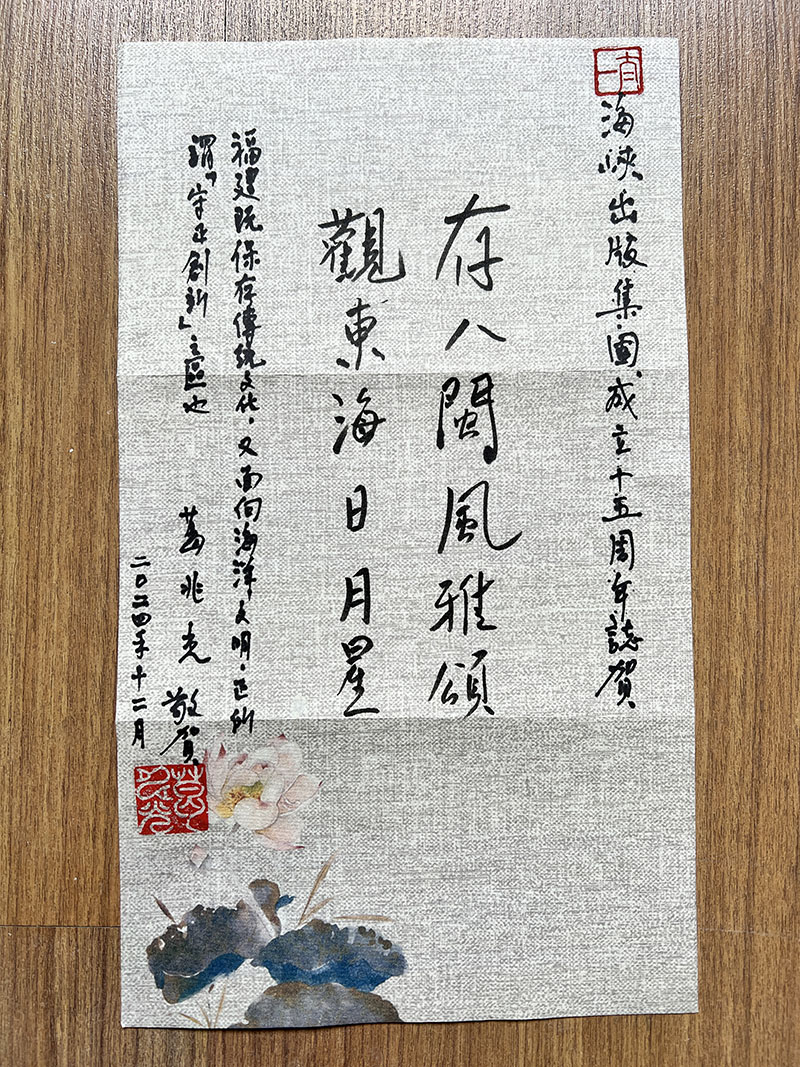 海峽出版集團成立十五周年誌賀
存八閩風雅頌
觀東海日月星
福建既保存傳統文化，又面向海洋文明，正所
謂「守正創新」之區也
葛兆光 敬賀
二〇二四年十二月